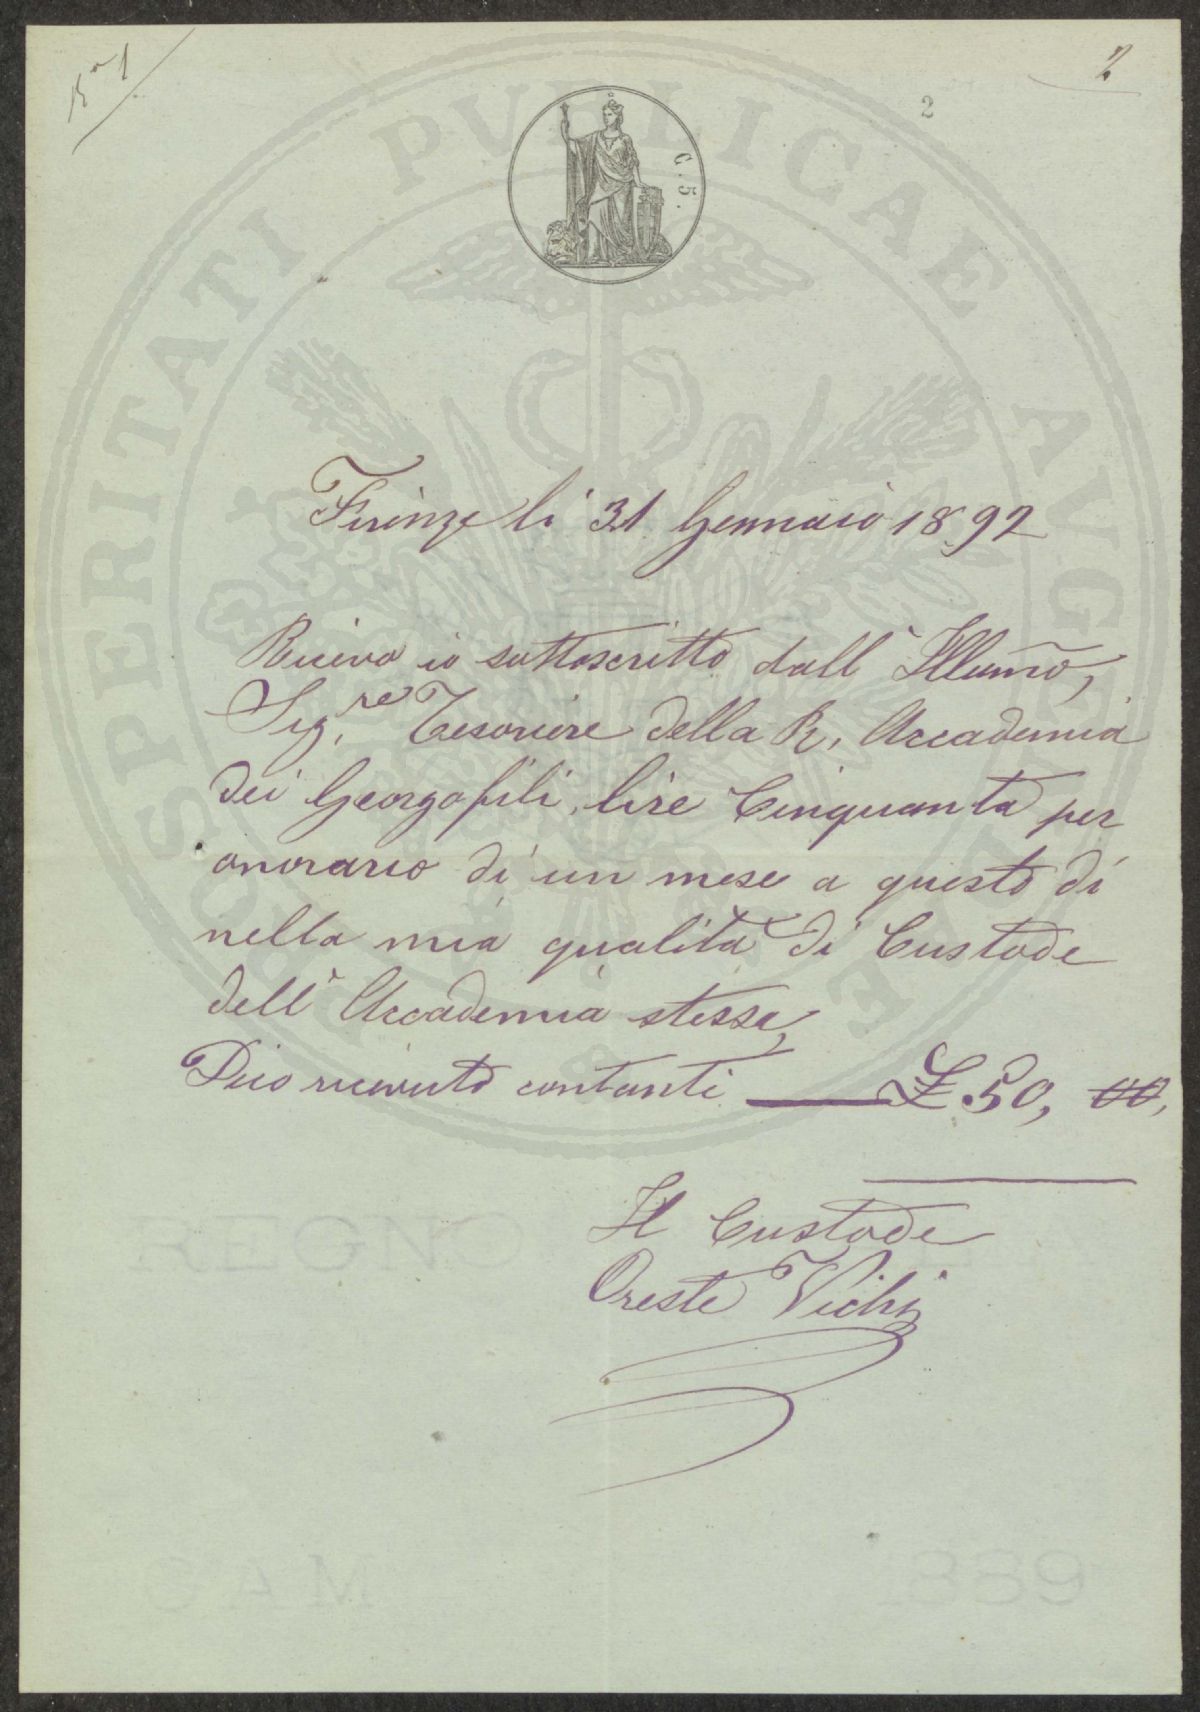 2
2
C. 5.
PROSPERITATI PUBLICAE AUGENDAE
Firenze li 31 Gennaio 1892
Ricevo io sottoscritto dall' Illumo,
Sig.re Tesoriere della R. Accademia
dei Georgofili, lire Cinquanta per
onorario di un mese a questo dì
nella mia qualità di Custode
dell' Accademia stessa,
Dico ricevuto contanti £ 50, 00,
Il Custode
Oreste Vichi
REGNO
MAG
1889